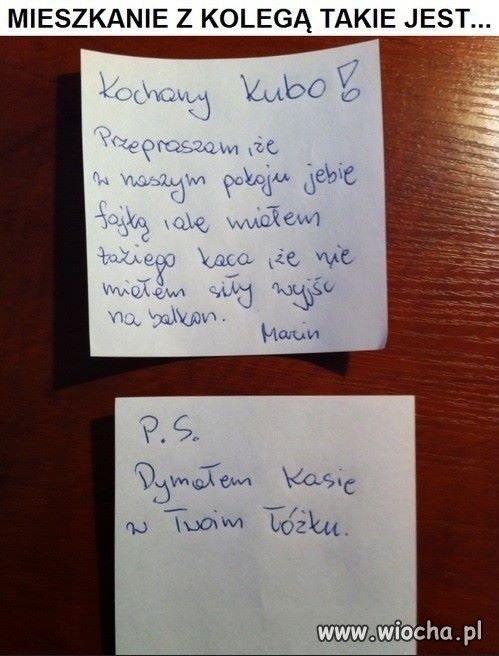 MIESZKANIE Z KOLEGĄ TAKIE JEST...
Kochany Kubo!
Przepraszam, że
w naszym pokoju jebie
fajką, ale miałem
takiego kaca, że nie
miałem siły wyjść
na balkon.
Marcin
P.S.
Dymałem Kasię
w Twoim łóżku.
www.wiocha.pl